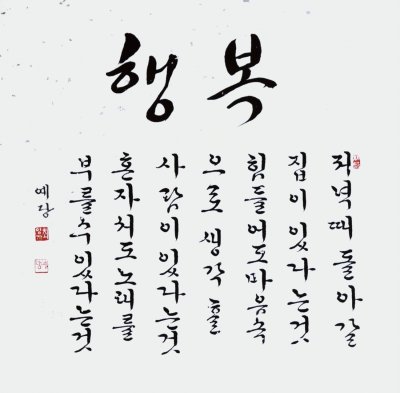 행복
저녁때 돌아갈
집이 있다는 것
힘들어도 마음속
으로 생각할
사람이 있다는 것
혼자서도 노래를
부를 수 있다는 것
예당